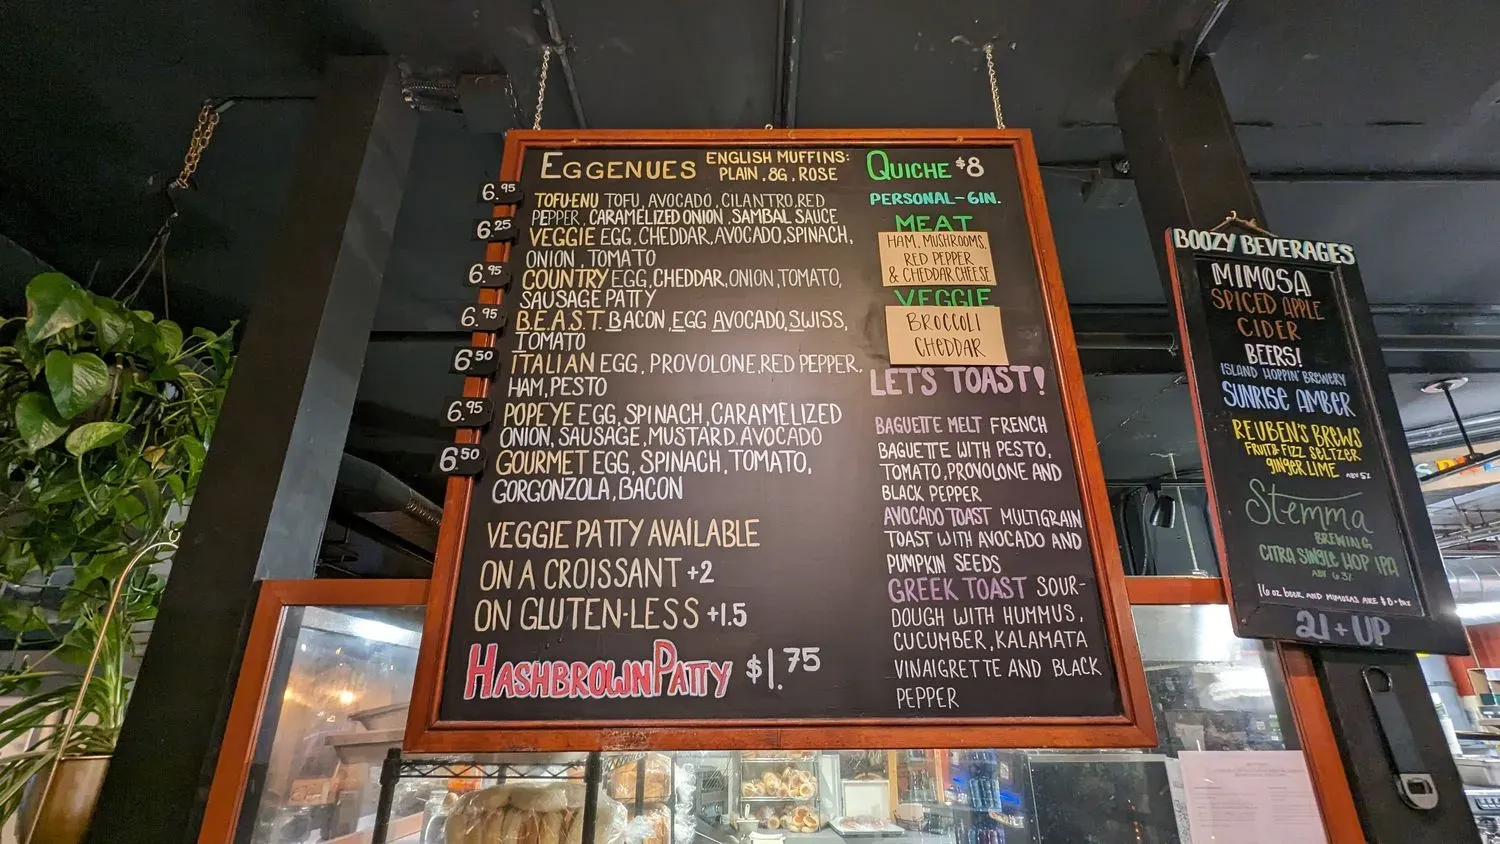 EGGENUES
ENGLISH MUFFINS:
PLAIN, 8G, ROSE
6.95
TOFU-ENU TOFU, AVOCADO, CILANTRO, RED
PEPPER, CARAMELIZED ONION, SAMBAL SAUCE
6.25
VEGGIE EGG, CHEDDAR, AVOCADO, SPINACH,
ONION, TOMATO
6.95
COUNTRY EGG, CHEDDAR, ONION, TOMATO,
SAUSAGE PATTY
6.95
B.E.A.S.T. BACON, EGG AVOCADO, SWISS,
TOMATO
6.50
ITALIAN EGG, PROVOLONE, RED PEPPER,
HAM, PESTO
6.95
POPEYE EGG, SPINACH, CARAMELIZED
ONION, SAUSAGE, MUSTARD, AVOCADO
6.50
GOURMET EGG, SPINACH, TOMATO,
GORGONZOLA, BACON
VEGGIE PATTY AVAILABLE
ON A CROISSANT +2
ON GLUTEN-LESS +1.5
HASHBROWN PATTY $1.75
QUICHE $8
PERSONAL - 6IN.
MEAT
HAM, MUSHROOMS,
RED PEPPER
& CHEDDAR CHEESE
VEGGIE
BROCCOLI
CHEDDAR
LET'S TOAST!
BAGUETTE MELT FRENCH
BAGUETTE WITH PESTO,
TOMATO, PROVOLONE AND
BLACK PEPPER
AVOCADO TOAST MULTIGRAIN
TOAST WITH AVOCADO AND
PUMPKIN SEEDS
GREEK TOAST SOUR-
DOUGH WITH HUMMUS,
CUCUMBER, KALAMATA
VINAIGRETTE AND BLACK
PEPPER
BOOZY BEVERAGES
MIMOSA
SPICED APPLE
CIDER
BEERS!
ISLAND HOPPIN' BREWERY
SUNRISE AMBER
REUBEN'S BREWS
FRUIT & FIZZ SELTZER
GINGER LIME ABV 5%
Stemma
BREWING
CITRA SINGLE HOP IPA
ABV 6.3%
16 OZ BEER AND MIMOSAS ARE $8 + tax
21 + UP